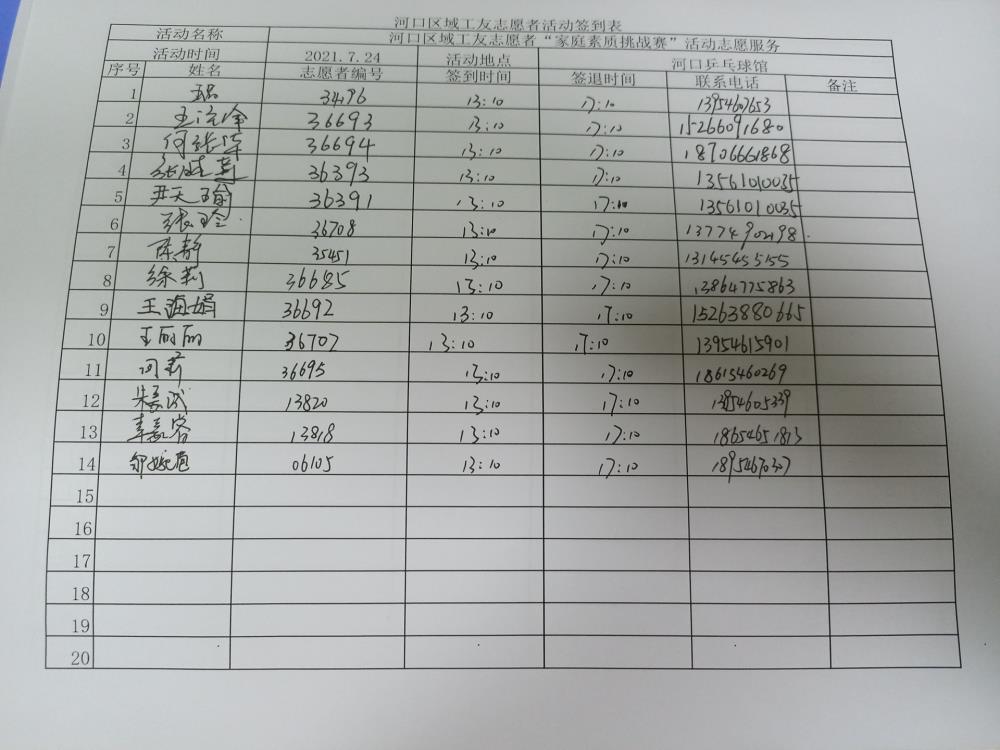 河口区域工友志愿者活动签到表
活动名称 河口区域工友志愿者“家庭素质挑战赛”活动志愿服务
活动时间 2021.7.24 活动地点 河口乒乓球馆
序号 姓名 志愿者编号 签到时间 签退时间 联系电话 备注
1 34796 13:10 17:10 13954607653
2 36693 13:10 17:10 15266091680
3 36694 13:10 17:10 18706661868
4 36393 13:10 17:10 13561010035
5 尹天瑜 36391 13:10 17:10 13561010035
6 张玲 36708 13:10 17:10 13774902198
7 陈静 35451 13:10 17:10 13145455155
8 徐莉 36685 13:10 17:10 13864775863
9 王海娟 36692 13:10 17:10 15263880665
10 王丽丽 36707 13:10 17:10 13954615901
11 36695 13:10 17:10 18615460269
12 13820 13:10 17:10 13954605339
13 13818 13:10 17:10 18654651813
14 06105 13:10 17:10 18954670307
15
16
17
18
19
20